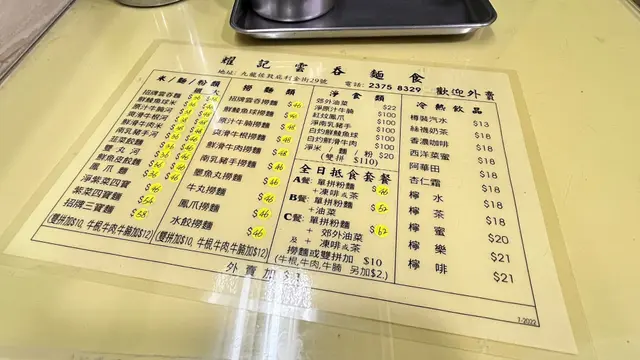 耀記雲吞麵食
地址: 九龍佐敦庇利金街29號
電話: 2375 8329 歡迎外賣
米/麵/粉類
細 大
招牌雲吞麵
鮮鯪魚球米
原汁牛腩河
爽滑牛根河
鮮滑牛肉米
南乳豬手河
韮菜餃麵
雙丸河
鮮魚皮餃麵
鳳爪麵
淨紫菜四寶
紫菜四寶麵 $54
招牌三寶麵 $58
(雙拼加$10, 牛根,牛肉,牛腩加$12)
撈麵類
招牌雲吞撈麵 $46
鮮鯪魚球撈麵 $46
原汁牛腩撈麵 $46
爽滑牛根撈麵 $46
鮮滑牛肉撈麵 $46
南乳豬手撈麵 $46
墨魚丸撈麵 $46
牛丸撈麵 $46
鳳爪撈麵 $46
水餃撈麵 $46
(雙拼加$10, 牛根,牛肉,牛腩加$12)
淨食類
郊外油菜 $22
淨原汁牛腩 $100
紅炆鳳爪 $100
淨南乳豬手 $100
白灼鮮鯪魚球 $100
白灼鮮滑牛肉 $100
淨米/麵/粉 $20
(雙拼 $110)
全日抵食套餐
A餐: 單拼粉麵 $46
+ 凍啡或茶
B餐: 單拼粉麵 $52
+ 油菜
C餐: 單拼粉麵 $62
+ 郊外油菜
及 + 凍啡或茶
撈麵或雙拼加 $10
(牛根,牛肉,牛腩 另加$2.)
冷熱飲品
樽裝汽水 $13
絲襪奶茶 $18
香濃咖啡 $18
西洋菜蜜 $18
阿華田 $18
杏仁霜 $18
檸水 $18
檸茶 $18
檸蜜 $20
檸樂 $21
檸啡 $21
外賣加
7-2022